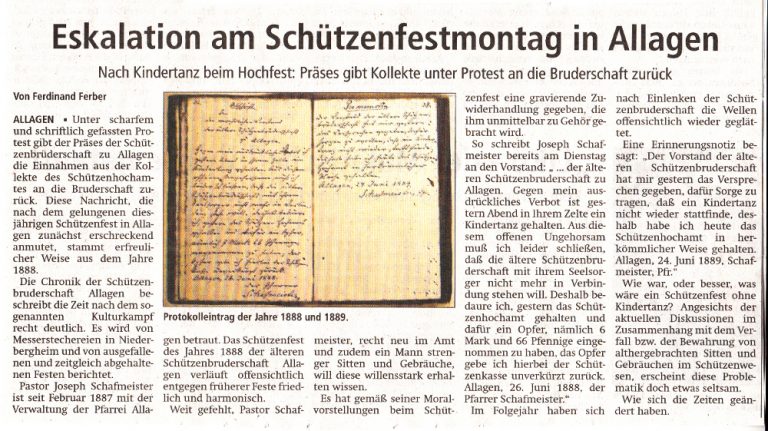 Eskalation am Schützenfestmontag in Allagen
Nach Kindertanz beim Hochfest: Präses gibt Kollekte unter Protest an die Bruderschaft zurück
Von Ferdinand Ferber
ALLAGEN ▪ Unter scharfem
und schriftlich gefassten Pro-
test gibt der Präses der Schüt-
zenbrüderschaft zu Allagen
die Einnahmen aus der Kol-
lekte des Schützenhocham-
tes an die Bruderschaft zu-
rück. Diese Nachricht, die
nach dem gelungenen dies-
jährigen Schützenfest in Alla-
gen zunächst erschreckend
anmutet, stammt erfreuli-
cher Weise aus dem Jahre
1888.
Die Chronik der Schützen-
bruderschaft Allagen be-
schreibt die Zeit nach dem so-
genannten Kulturkampf
recht deutlich. Es wird von
Messerstechereien in Nieder-
bergheim und von ausgefalle-
nen und zeitgleich abgehalte-
nen Festen berichtet.
Pastor Joseph Schafmeister
ist seit Februar 1887 mit der
Verwaltung der Pfarrei Alla-
Protokolleintrag der Jahre 1888 und 1889.
gen betraut. Das Schützenfest
des Jahres 1888 der älteren
Schützenbruderschaft Allagen
verläuft offensichtlich
entgegen früherer Feste fried-
lich und harmonisch.
Weit gefehlt, Pastor Schaf-
meister, recht neu im Amt
und zudem ein Mann stren-
ger Sitten und Gebräuche,
will diese willensstark erhal-
ten wissen.
Es hat gemäß seiner Moral-
vorstellungen beim Schüt-
zenfest eine gravierende Zu-
widerhandlung gegeben, die
ihm unmittelbar zu Gehör ge-
bracht wird.
So schreibt Joseph Schaf-
meister bereits am Dienstag
an den Vorstand: „ ... der älte-
ren Schützenbruderschaft zu
Allagen. Gegen mein aus-
drückliches Verbot ist ges-
tern Abend in Ihrem Zelte ein
Kindertanz gehalten. Aus die-
sem offenen Ungehorsam
muß ich leider schließen,
daß die ältere Schützenbru-
derschaft mit ihrem Seelsor-
ger nicht mehr in Verbin-
dung stehen will. Deshalb be-
daure ich, gestern das Schüt-
zenhochamt gehalten und
dafür ein Opfer, nämlich 6
Mark und 66 Pfennige einge-
nommen zu haben, das Opfer
gebe ich hierbei der Schüt-
zenkasse unverkürzt zurück.
Allagen, 26. Juni 1888, der
Pfarrer Schafmeister.“
Im Folgejahr haben sich
nach Einlenken der Schüt-
zenbruderschaft die Wellen
offensichtlich wieder geglät-
tet.
Eine Erinnerungsnotiz be-
sagt: „Der Vorstand der älte-
ren Schützenbruderschaft
hat mir gestern das Verspre-
chen gegeben, dafür Sorge zu
tragen, daß ein Kindertanz
nicht wieder stattfinde, des-
halb habe ich heute das
Schützenhochamt in her-
kömmlicher Weise gehalten.
Allagen, 24. Juni 1889, Schaf-
meister, Pfr.“
Wie war, oder besser, was
wäre ein Schützenfest ohne
Kindertanz? Angesichts der
aktuellen Diskussionen im
Zusammenhang mit dem Ver-
fall bzw. der Bewahrung von
althergebrachten Sitten und
Gebräuchen im Schützenwe-
sen, erscheint diese Proble-
matik doch etwas seltsam.
Wie sich die Zeiten geän-
dert haben.